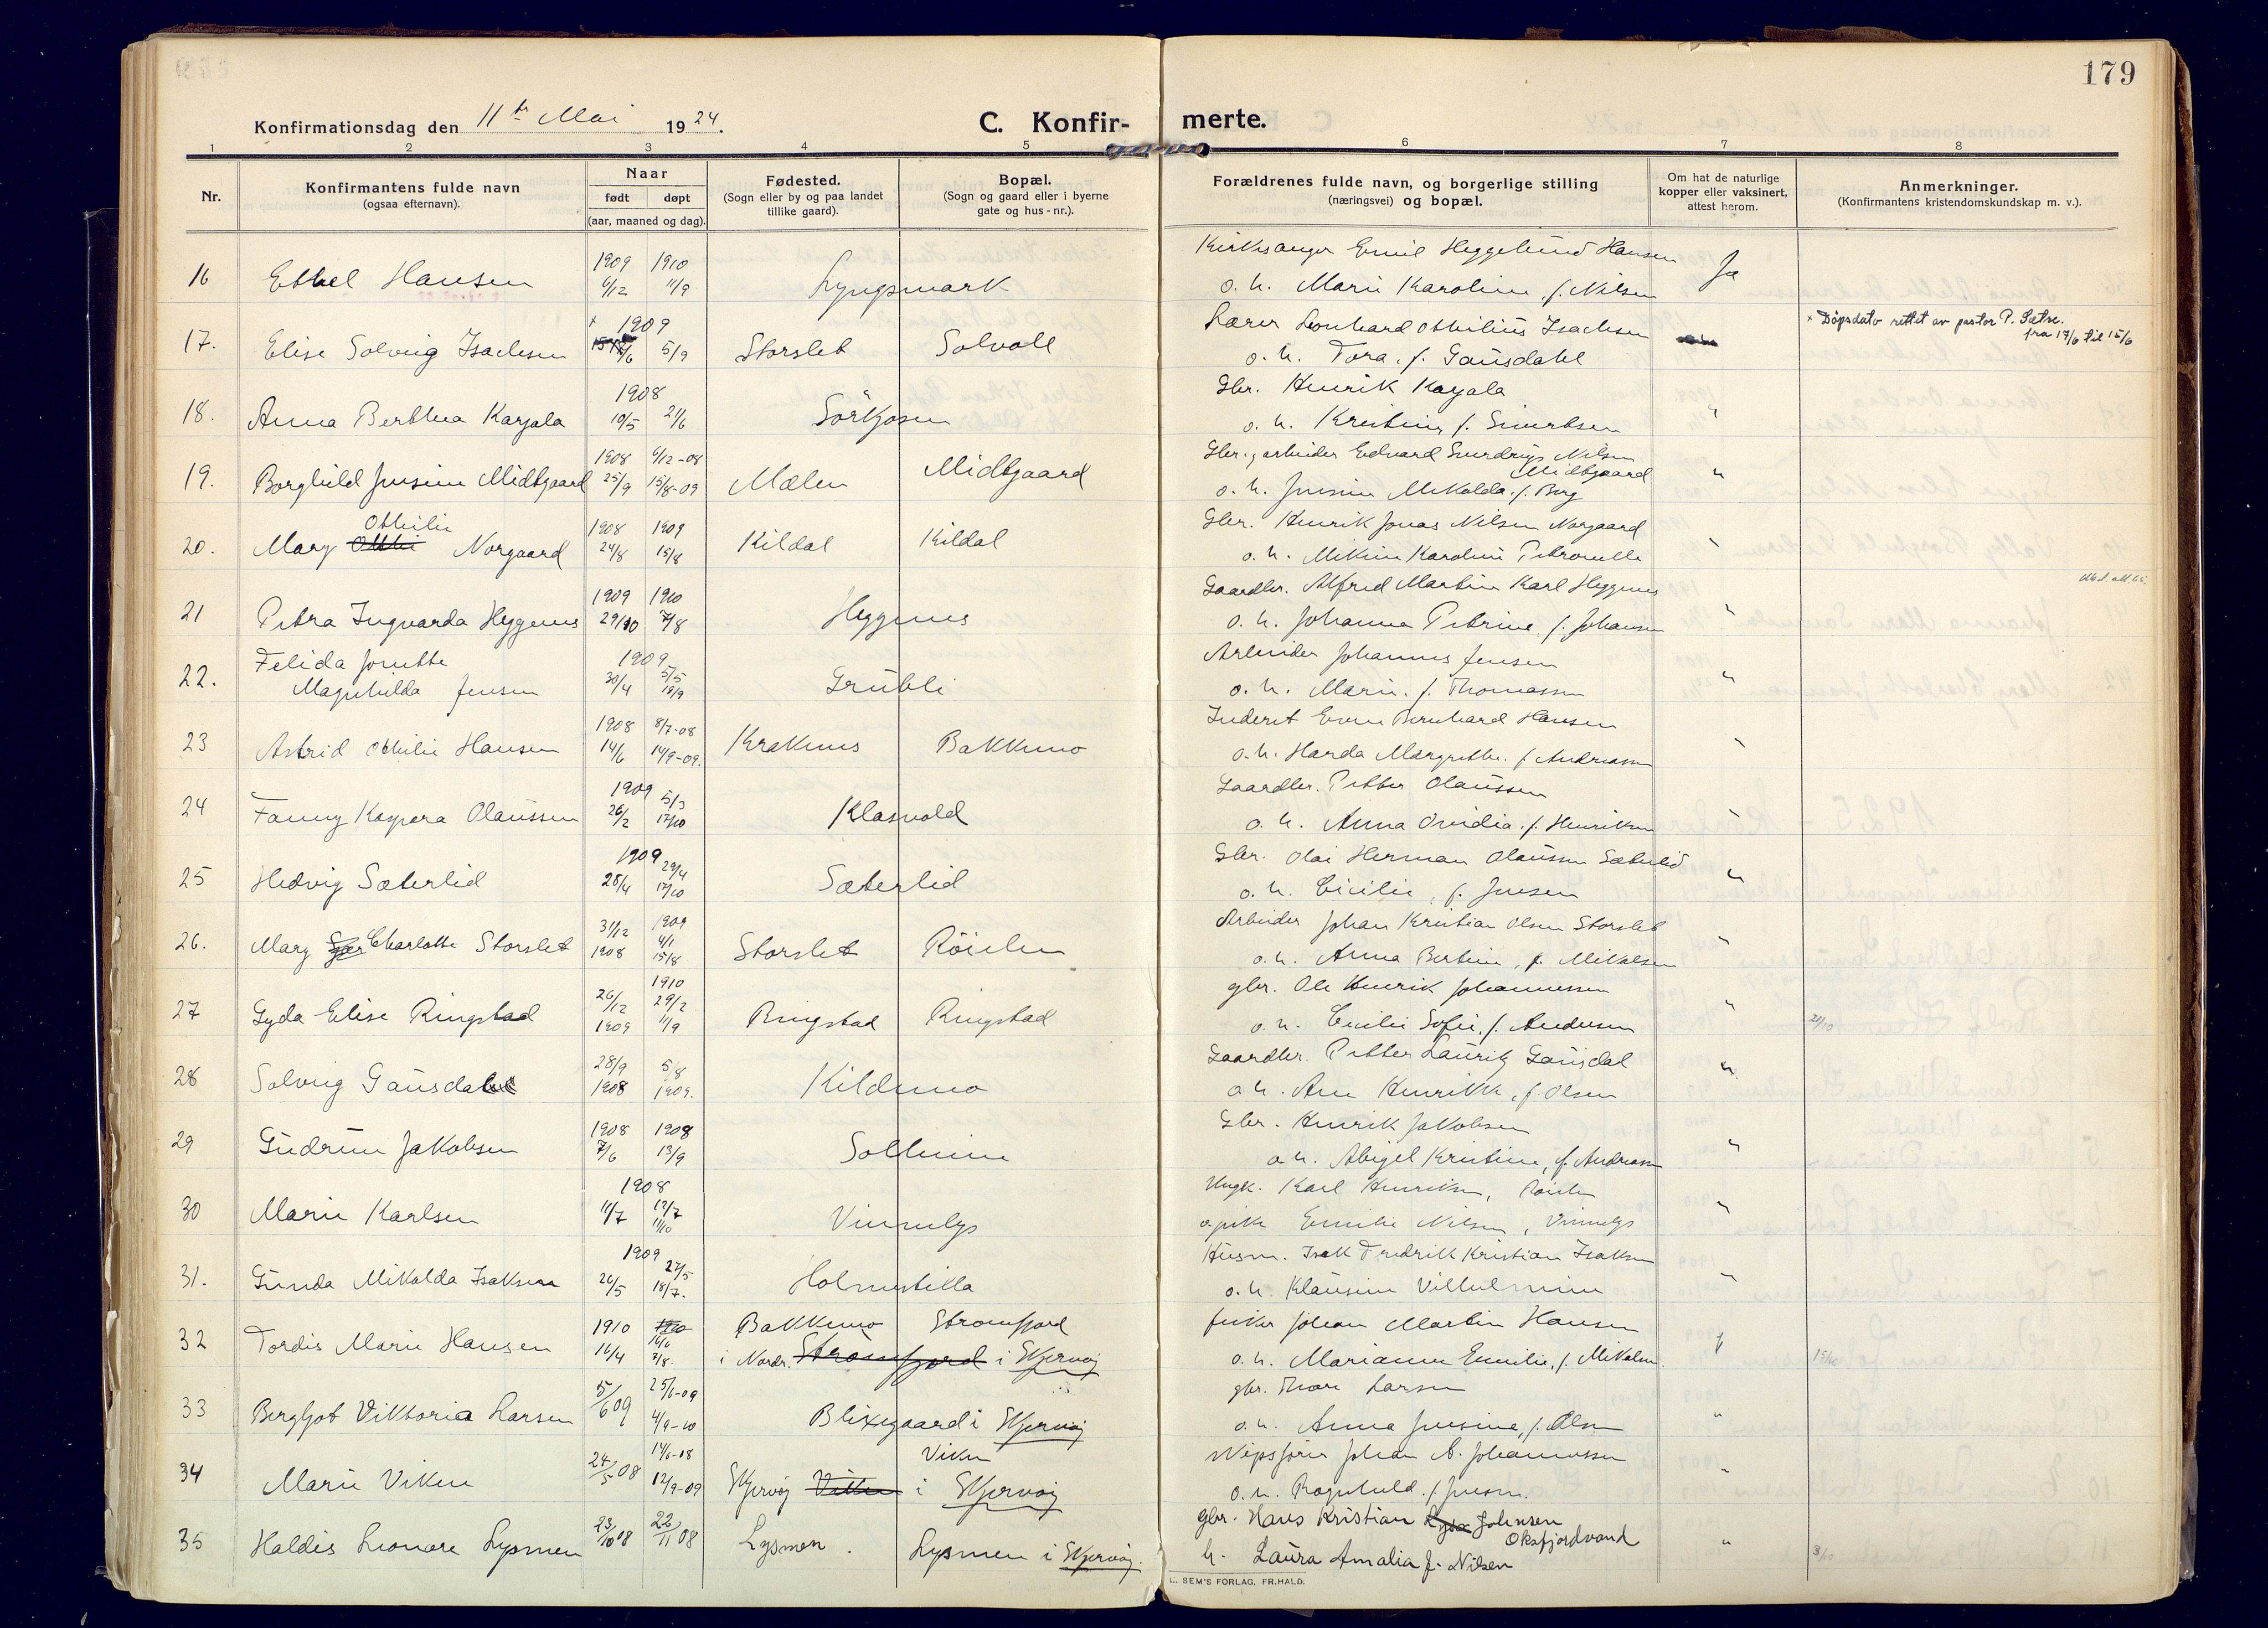 179
Konfirmationsdag den 11te Mai 1924.
C. Konfir- merte.
1 2 3 4 5 6 7 8
Nr.
Konfirmantens fulde navn
(ogsaa efternavn).
Naar
født døpt
(aar, maaned og dag).
Fødested.
(Sogn eller by og paa landet
tillike gaard).
Bopæl.
(Sogn og gaard eller i byerne
gate og hus-nr.).
Forældrenes fulde navn, og borgerlige stilling
(næringsvei) og bopæl.
Om hat de naturlige
kopper eller vaksinert,
attest herom.
Anmerkninger.
(Konfirmantens kristendomskundskap m. v.).
16 Ethel Hansen 1909 6/12 1910 11/9 Lyngsmark Kirkesanger Emil Heggelund Hansen Ja
o. h. Marie Karoline, f. Nilsen
17. Elise Solveig Isachsen x 1909 5/9 Storslet Solvoll Lærer Leonhard Othilius Isachsen x Dåpsdato rettet av pastor P. Sætre.
fra 17/6 til 15/6
o. h. Tora. f. Gausdahl
18. Anna Berthea Karjala 1908 10/5 21/6 Sörkjosen Gbr. Henrik Karjala "
o. h. Kristine, f. Sivertsen
19. Borghild Jensine Midtgaard 1908 25/9 6/12-08 15/8-09 Mælen Midtgaard Gbr. arbeider Edvard Sverdrup Nilsen
Midtgaard "
o. h. Jensine Mikalda. f. Berg
20. Mary Othilie Norgaard 1908 24/8 1909 15/8 Kildal Kildal Gbr. Henrik Jonas Nilsen Norgaard "
o. h. Mikine Karoline Petronelle
21 Petra Ingvarda Heggenes 1909 29/10 1910 7/8 Heggenes Gaardbr. Alfred Martin Karl Heggenes "
o. h. Johanna Petrine f. Johansen
22. Felida Jonette
Magnhilda Jensen 1909 30/4 5/5 19/9 Grubli Arbeider Johannes Jensen "
o. h. Marie. f. Thomassen
23 Astrid Othilie Hansen 1908 14/6 8/7-08 14/9-09. Krakenes Bakkemo Inderst Evene Bernhard Hansen "
o. h. Harda Margrethe. f Andreassen
24 Fanny Kaspara Olaussen 1909 26/2 5/3 17/10 Klasvold Gaardbr. Petter Olaussen "
o. h. Anna Ovidia. f. Henriksen
25 Hedvig Sæterlid 1909 28/4 29/4 17/10 Sæterlid Gbr. Olai Herman Olaussen Sæterlid "
o. h. Cicilie, f. Jensen
26. Mary Charlotte Storslet 31/12 1908 1909 4/1 15/8 Storslet Röielen Arbeider Johan Kristian Olsen Storslet "
o. h. Anna Bertine, f. Mikalsen
27 Gyda Elise Ringstad 26/12 1909 1910 29/2 11/9 Ringstad Ringstad gbr. Ole Henrik Johannessen "
o. h. Cecilie Sofie, f. Andersen
28 Solveig Gausdal 28/9 1908 5/8 1909. Kildemo Gaardbr. Petter Lauritz Gausdal "
o h. Ane Henrikke, f. Olsen
29 Gudrun Jakobsen 1908 7/6 1908 13/9 Solheim Gbr. Henrik Jakobsen "
o h. Abigel Kristine, f. Andreassen
30 Marie Karlsen 1908 11/7 19/7 11/10 Vinnelys Ungk. Karl Henriksen, Röielen "
o. pike Emilie Nilsen, Vinnelys
31. Gunda Mikalda Isaksen 1909 26/5 27/5 18/7. Holmestilla Husm. Isak Fredrik Kristian Isaksen "
o. h. Klausine Vilhelmine
32 Tordis Marie Hansen 1910 16/4 1910 7/8. Bakkemo Stromfjord fisker Johan Martin Hansen
i Nordr. Strømfjord i Skjervøy o. h. Marianne Emilie, f. Mikalsen. 15/10
33 Bergljot Viktoria Larsen 5/6 09 25/6-09 4/9-10 Blixegaard i Skjervøy gbr. Thore Larsen "
o. h. Anna Jensine, f. Olsen
34 Marie Viken 24/5 08 14/6-08 12/9-09 Skjervøy Viken i Viken Skjervøy Johan A. Johannessen "
o. h. Ragnhild. f. Jensen.
35 Haldis Leonore Lysmen 23/10 08 22/11 08 Lysmen. Lysmen i Skjervøy. gbr. Hans Kristian Johnsen
Oksfjordvand "
h. Laura Amalia f. Nilsen 3/10
L. SEM'S FORLAG, FR.HALD.